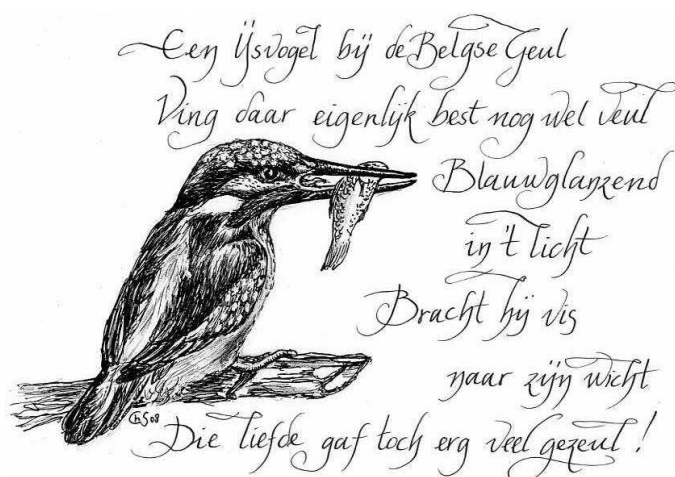 Een IJsvogel bij de Belgse Geul
Ving daar eigenlijk best nog wel veul
Blauwglanzend
in 't licht
Bracht hij vis
naar zijn wicht
ChS 08
Die liefde gaf toch erg veel gezeul !